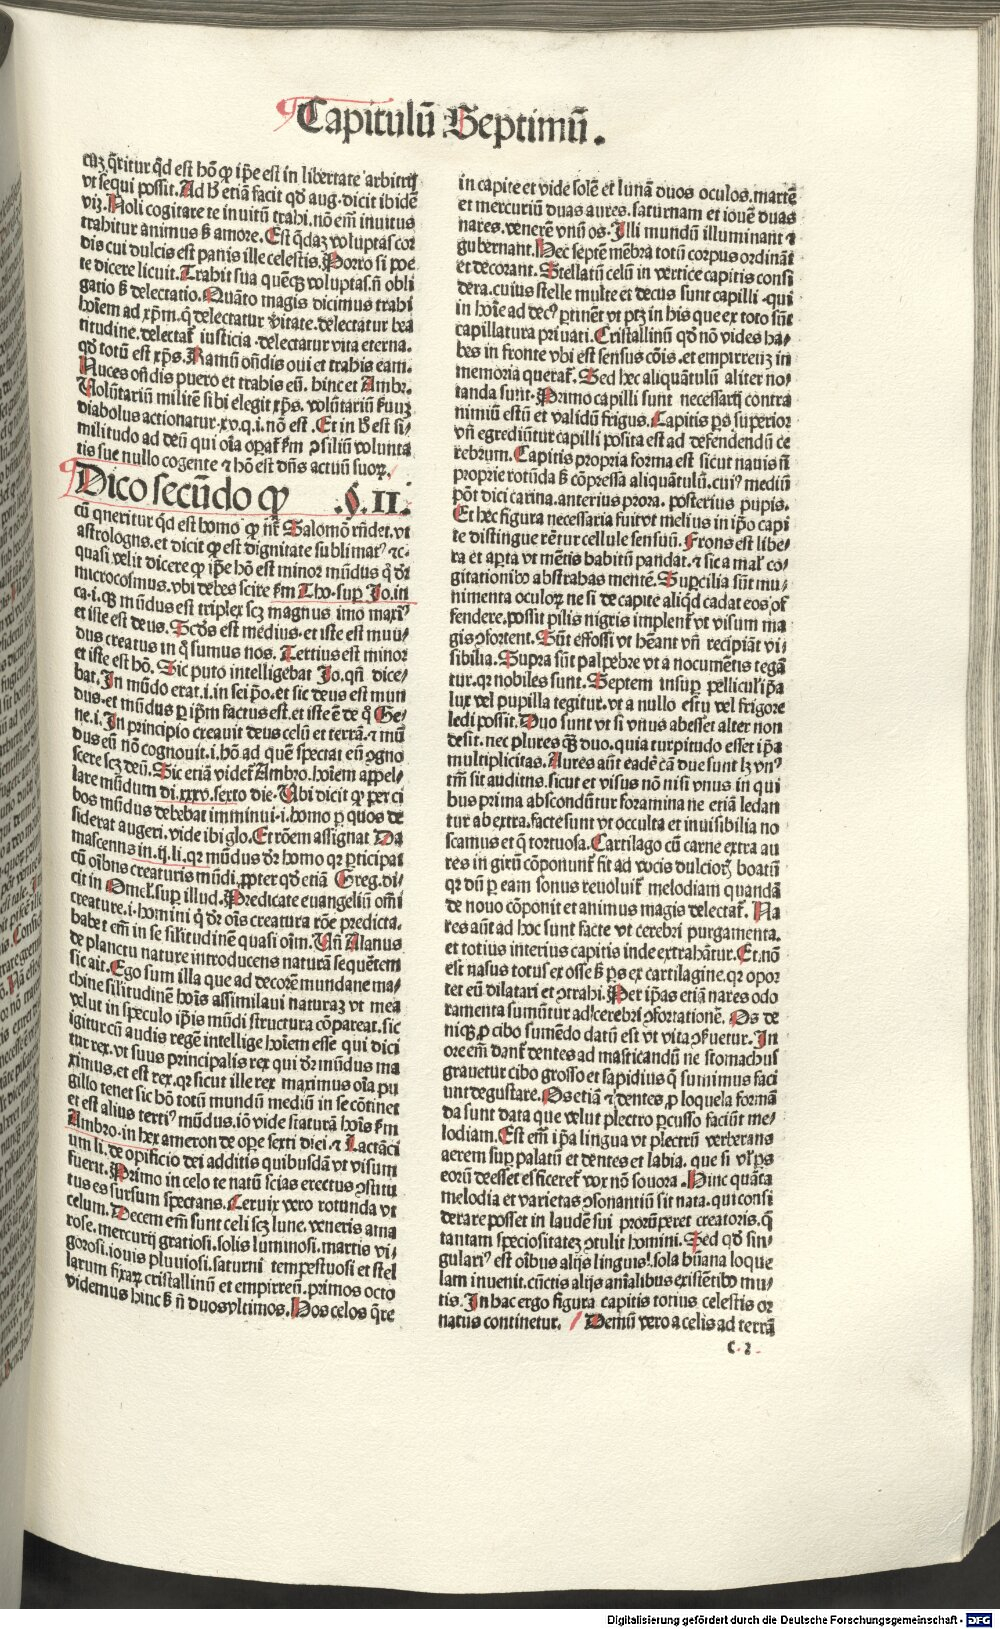 Capitulū Septimū.
cuꝫ q̄ritur qͥd est hō ꝙ ip̄e est in libertate arbitrij
vt sequi possit. Ad hͦ etiā facit qđ aug. dicit ibidē
viꝫ. Noli cogitare te inuitū trahi. nō em̄ inuitus
trahitur animus sꝫ amore. Est q̄daꝫ voluptas cor
dis cui dulcis est panis ille celestis. Porro si poe
te dicere licuit. Trahit sua quēqꝫ voluptas. ñ obli
gatio sꝫ delectatio. Quāto magis dicimus trahi
hoīem ad xp̄m. q̄ delectatur v̓itate. delectatur bea
titudine. delectat̓ iusticia. delectatur vita eterna.
qđ totū est xp̄s. Ramū oñdis oui et trahis eam.
Nuces oñdis puero et trahis eū. hinc et Ambr.
Volūtariū militē sibi elegit xp̄s. volūtariū s̓uuꝫ
diabolus actionatur. xv. q. i. nō est. Et in hͦ est si-
militudo ad deū qui oīa oꝑat̓ ẜm ↄsiliū volunta
tis sue nullo cogente ⁊ hō est dn̄s actuū suoꝝ.
Dico secūdo ꝙ .§. II.
cū queritur qͥd est homo ꝙ in̄t̓ Salomō rn̄det. vt
astrologus. et dicit ꝙ est dignitate sublimat⁹ ⁊c.
quasi velit dicere ꝙ ip̄e hō est minor mūdus q̄ dr̄
microcosmus. vbi debes scire ẜm Tho. suꝑ Jo. in
ca. i. ꝙ mūdus est triplex scꝫ magnus imo maxi⁹
et iste est deus. Scd̓s est medius. et iste est mun-
dus creatus in q̄ sumus nos. Tertius est minor
et iste est hō. Sic puto intelligebat Jo. qn̄ dice-
bat. In mūdo erat. i. in seip̄o. et sic deus est mun
dus. et mūdus ꝑ ip̄m factus est. et iste ē de q̄ Ge-
ne. i. In principio creauit deus celū et terrā. ⁊ mū
dus eū nō cognouit. i. hō ad quē spectat eū ↄgno
scere scꝫ deū. Sic etiā videt̓ Ambro. hoīem appel-
lare mūdum di. xxxv. sexto die. Vbi dicit ꝙ per ci
bos mūdus debebat imminui. i. homo ꝑ quos de
siderat augeri. vide ibi glo. Et rōem assignat Da
mascenus in. ij. li. qꝛ mūdus dr̄ homo qꝛ ꝑticipat
cū oībus creaturis mūdi. ꝓpter qđ etiā Greg. di-
cit in Omel. suꝑ illud. Predicate euangeliū om̄i
creature. i. homini q̄ dr̄ oīs creatura rōe predicta.
habet em̄ in se silitudinē quasi oīm. Vn̄ Alanus
de planctu nature introducens naturā sequētem
sic ait. Ego sum illa que ad decorē mundane ma-
chine silitudinē hoīs assimilaui naturaꝫ vt mea
velut in speculo ip̄is mūdi structura cōpareat. sic
igitur cū audis regē intellige hoīem esse qui dici
tur rex. vt suus principalis rex qui dr̄ mūdus ma
ximus. et est rex. qꝛ sicut ille rex maximus oīa pu
gillo tenet sic hō totū mundū mediū in se cōtinet
et est alius terti⁹ mūdus. iō vide staturā hoīs ẜm
Ambro. in hexameron de oꝑe sexti diei. ⁊ Lactāci
um li. de opificio dei additis quibusdā vt visum
fuerit. Primo in celo te natū scias erectus ↄstitu
tus es sursum spectans. Ceruix vero rotunda vt
celum. Decem em̄ sunt celi scꝫ lune. veneris ama
rose. mercurij gratiosi. solis luminosi. martis vi-
gorosi. iouis pluuiosi. saturni tempestuosi et stel
larum fixaꝝ cristallinū et empirreū. primos octo
videmus hinc sꝫ ñ duos vltimos. Hos celos q̄re
in capite et vide solē et lunā duos oculos. martē
et mercuriū duas aures. saturnam et iouē duas
nares. venerē vnū os. Illi mundū illuminant ⁊
gubernant. Hec septē mēbra totū corpus ordināt
et decorant. Stellatū celū in vertice capitis consi
dera. cuius stelle multe et decus sunt capilli. qui
in hoīe ad dec⁹ ꝑtinēt vt ptꝫ in his que ex toto sūt
capillatura priuati. Cristallinū qđ nō vides ha-
bes in fronte vbi est sensus cōis. et empirreuꝫ in
memoria querat̓. Sed hec aliquātulū aliter no-
tanda sunt. Primo capilli sunt necessarij contra
nimiū estū et validū frigus. Capitis ꝑs superior
vn̄ egrediūtur capilli posita est ad defendendū ce
rebrum. Capitis propria forma est sicut nauis ñ
proprie rotūda sꝫ cōpressa aliquātulū. cui⁹ mediū
pōt dici carina. anterius prora. posterius pupis.
Et hec figura necessaria fuit vt melius in ip̄o capi
te distingue rētur cellule sensuū. Frons est libe-
ra et aꝑta vt mētis habitū pandat. ⁊ sic a mal̓ co-
gitationibꝰ abstrahas mentē. Suꝑcilia sūt mu-
nimenta oculoꝝ ne si de capite aliqͥd cadat eos of
fendere. possit pilis nigris implent̓ vt visum ma
gis ↄfortent. Sūt effossi vt hēant vn̄ recipiāt vi-
sibilia. Supra sūt palpebre vt a nocumētis tegā
tur. qꝛ nobiles sunt. Septem insuꝑ pelliculꝭ ip̄a
lux vel pupilla tegitur. vt a nullo estu vel frigore
ledi possit. Duo sunt vt si vnus abesset alter non
desit. nec plures q̄ꝫ duo. quia turpitudo esset ip̄a
multiplicitas. Aures aūt eadē cā due sunt lꝫ vn⁹
tm̄ sit auditus. sicut et visus nō nisi vnus in qui
bus prima abscondūtur foramina ne etiā ledan
tur ab extra. facte sunt vt occulta et inuisibilia no
scamus et q̄ tortuosa. Cartilago cū carne extra au
res in girū cōponunt̓ sit ad vocis dulcior̄ boatū
qꝛ dū ꝑ eam sonus reuoluit̓ melodiam quandā
de nouo cōponit et animus magis delectat̓. Na
res aūt ad hoc sunt facte vt cerebri purgamenta.
et totius interius capitis inde extrahātur. Et nō
est nasus totus et osse sꝫ ꝑs ex cartilagine. qꝛ opor
tet eū dilatari et ↄtrahi. Per ip̄as etiā nares odo
ramenta sumūtur ad cerebri ↄfortationē. Os de
niqꝫ ꝓ cibo sumēdo datū est vt vita ↄs̓uetur. In
ore em̄ dant̓ dentes ad masticandū ne stomachus
grauetur cibo grosso et sapidius q̄ sumimus faci
unt degustare. Os etiā ⁊ dentes ꝓ loquela formā
da sunt data que velut plectro ꝑcusso faciūt me-
lodiam. Est em̄ ip̄a lingua vt plectrū verberans
aerem suꝑ palatū et dentes et labia. que si vl̓ ꝑs
eorū deesset efficeret̓ vox nō sonora. Hinc quāta
melodia et varietas ↄsonantiū sit nata. qui consi
derare posset in laudē sui prorūperet creatoris. q̄
tantam speciositateꝫ ↄtulit homini. Sed qđ sin-
gular⁹ est oībus alijs linguis. sola hūana loque
lam inuenit. cūctis alijs aīalibus existētibꝰ mu-
tis. In hac ergo figura capitis totius celestis or
natus continetur. Demū vero a celis ad terrā
c. 2
Digitalisierung gefördert durch die Deutsche Forschungsgemeinschaft - DFG